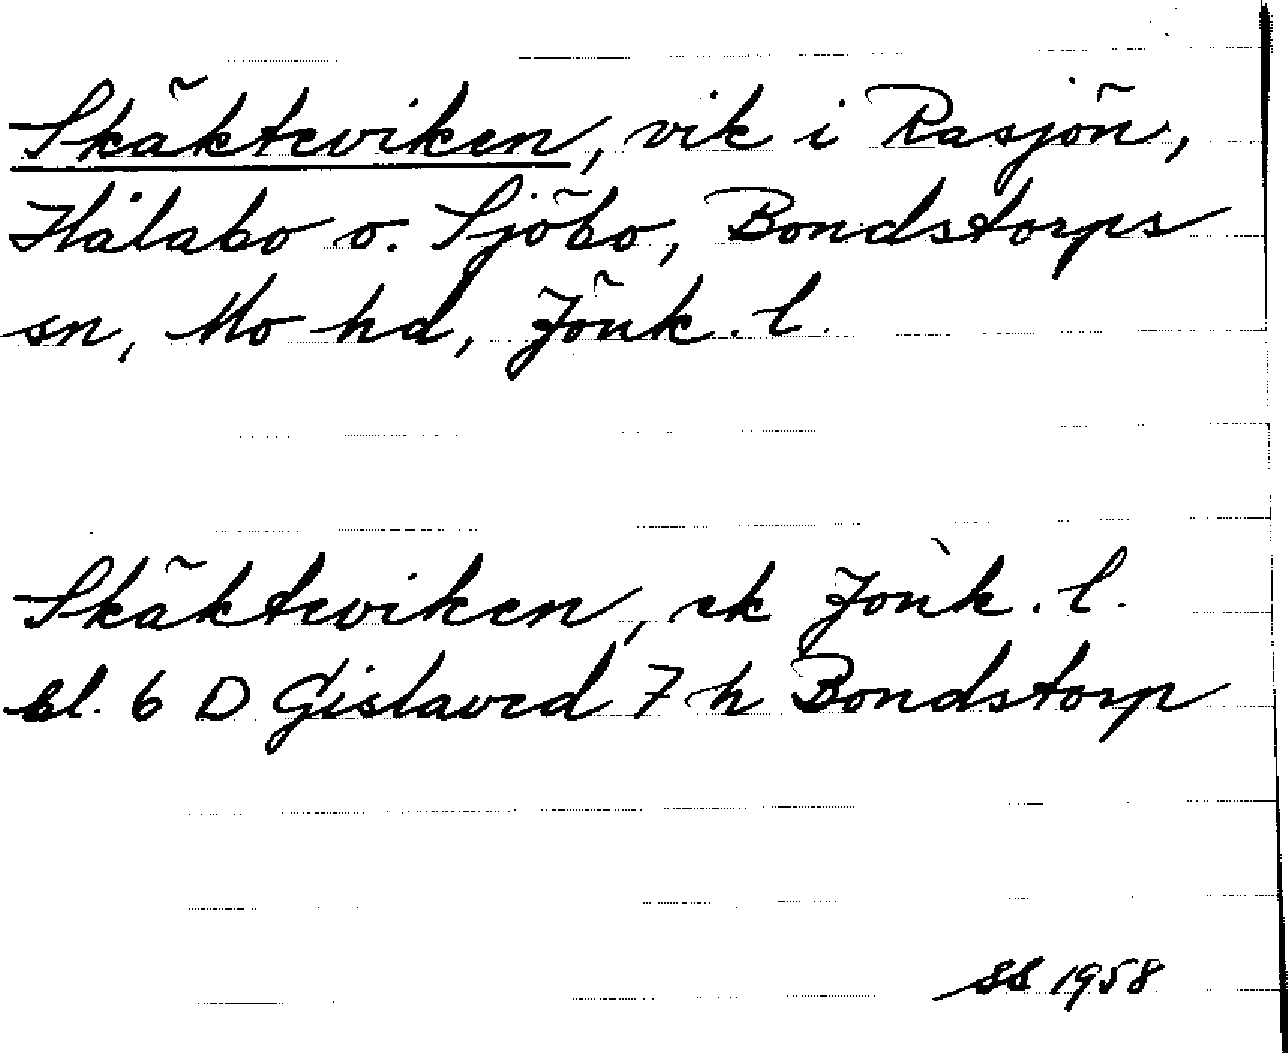 Skäkteviken, vik i Rasjön,
Hålabo o. Sjöbo, Bondstorps
sn, Mo hd, Jönk. l.
Skäkteviken, ek Jönk. l.
bl. 6 D Gislaved 7 h Bondstorp
SS 1958